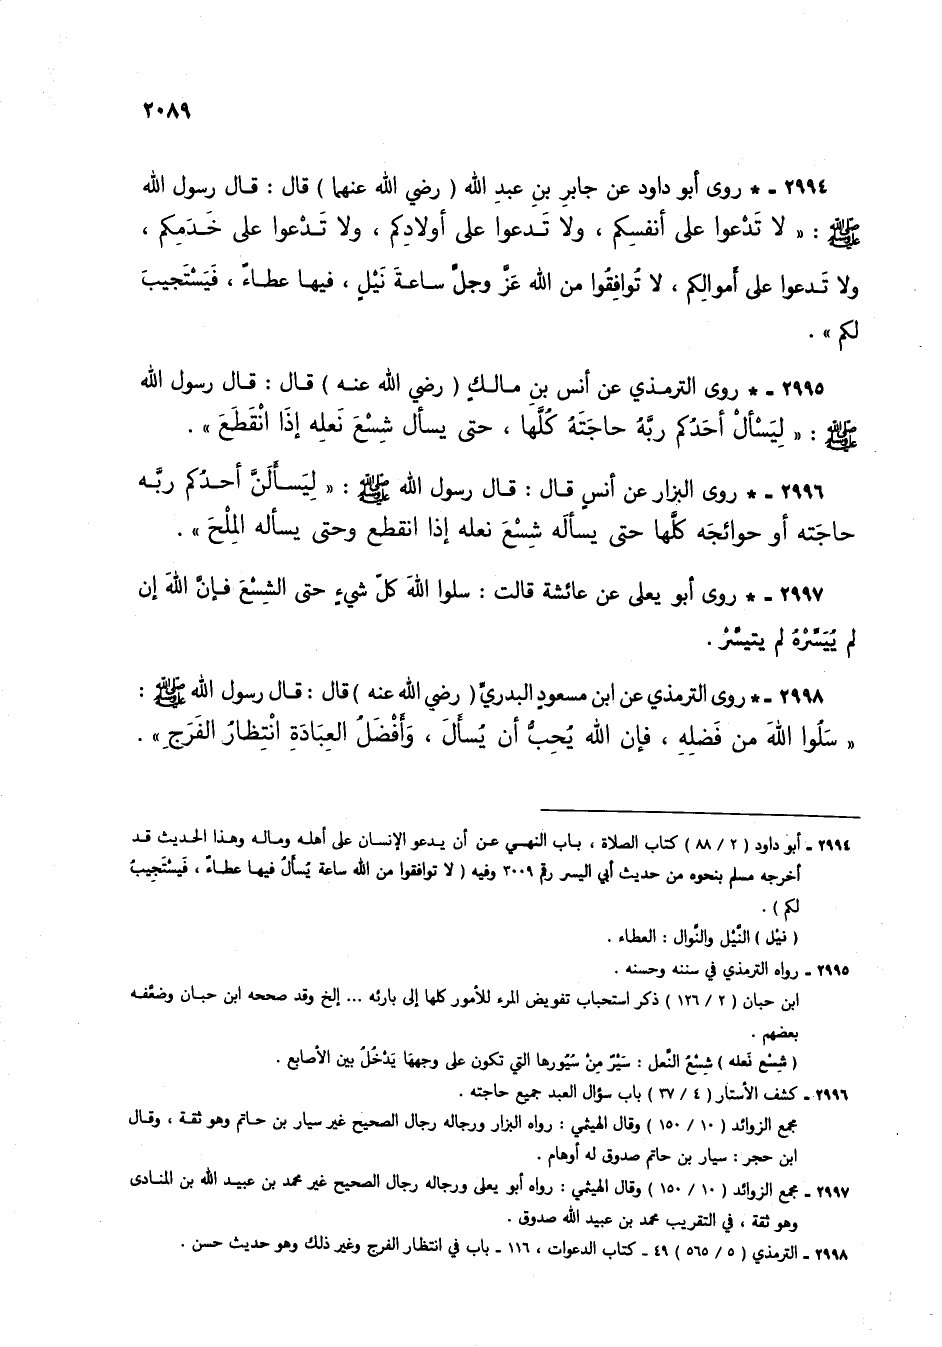 ٢٠٨٩
٢٩٩٤ ـ * روى أبو داود عن جابرِ بنِ عبدِ الله ( رضي الله عنهما ) قال : قـال رسول الله
ﷺ : « لا تَدْعوا على أنفسِكم ، ولا تَـدعوا على أولادِكم ، ولا تَـدْعوا على خَـدَمِكم ،
ولا تَـدعوا على أموالِكم ، لا تُوافِقُوا من الله عَزَّ وجلَّ ساعـةَ نَيْلٍ ، فيهـا عطـاءً ، فَيَسْتَجيبَ
لكم » .
٢٩٩٥ ـ * روى الترمـذي عن أنس بنِ مـالـكٍ ( رضي الله عنـه ) قـال : قـال رسول الله
ﷺ : « لِيَسْألْ أحَدُكم ربَّهُ حاجَتَهُ كُلَّها ، حتى يسأل شِسْعَ نَعلِه إذَا انْقَطَعَ » .
٢٩٩٦ ـ * روى البزار عن أنسٍ قـال : قـال رسول الله ﷺ : « لِيَسـأَلَنَّ أحـدُكم ربَّـه
حاجَته أو حوائجَه كلَّها حتى يسألَه شِسْعَ نعله إذا انقطع وحتى يسأله المِلْحَ » .
٢٩٩٧ ـ * روى أبو يعلى عن عائشة قالت : سلوا اللهَ كلّ شيءٍ حتى الشِسْعَ فـإنَّ اللهَ إن
لم يُيَسِّرْهُ لم يتيسَّرْ .
٢٩٩٨ ـ * روى الترمذي عن ابن مسعودٍ البدريِّ ( رضي الله عنه ) قال : قـال رسول الله ﷺ :
« سَلُوا اللهَ من فَضلِهِ ، فإن الله يُحِبُّ أن يُسأَلَ ، وَأَفْضَلُ العِبَادَةِ انْتِظارُ الفَرَجِ » .
٢٩٩٤ ـ أبو داود ( ٢ / ٨٨ ) كتاب الصلاة ، بـاب النهـي عـن أن يـدعو الإنسـان على أهلـه ومـالـه وهـذا الحديث قـد
أخرجه مسلم بنحوه من حديث أبي اليسر رقم ٣٠٠٩ وفيه ( لا توافقوا من الله ساعة يُسألُ فيهـا عطـاءً ، فَيَسْتَجِيبُ
لكم ) .
( نيْل ) النَّيْل والنَّوال : العطاء .
٢٩٩٥ ـ رواه الترمذي في سننه وحسنه .
ابن حبان ( ٢ / ١٢٦ ) ذكر استحباب تفويض المرء للأمور كلها إلى بارئه ... إلخ وقد صححه ابن حبـان وضعّفـه
بعضهم .
( شِسْع نَعله ) شِسْعُ النَّعل : سَيْرٌ مِنْ سُيُورها التي تكون على وجهها يَدْخُلُ بين الأصابع .
٢٩٩٦ ـ كشف الأستار ( ٤ / ٣٧ ) باب سؤال العبد جميع حاجته .
مجمع الزوائد ( ١٠ / ١٥٠ ) وقال الهيثمي : رواه البزار ورجاله رجال الصحيح غير سيار بن حـاتم وهو ثقـة ، وقـال
ابن حجر : سيار بن حاتم صدوق له أوهام .
٢٩٩٧ ـ مجمع الزوائد ( ١٠ / ١٥٠ ) وقال الهيثمي : رواه أبو يعلى ورجاله رجال الصحيح غير محمد بن عبيـد الله بن المنـادى
وهو ثقة ، في التقريب محمد بن عبيد الله صدوق .
٢٩٩٨ ـ الترمذي ( ٥ / ٥٦٥ ) ٤٩ ـ كتاب الدعوات ، ١١٦ ـ باب في انتظار الفرج وغير ذلك وهو حديث حسن .